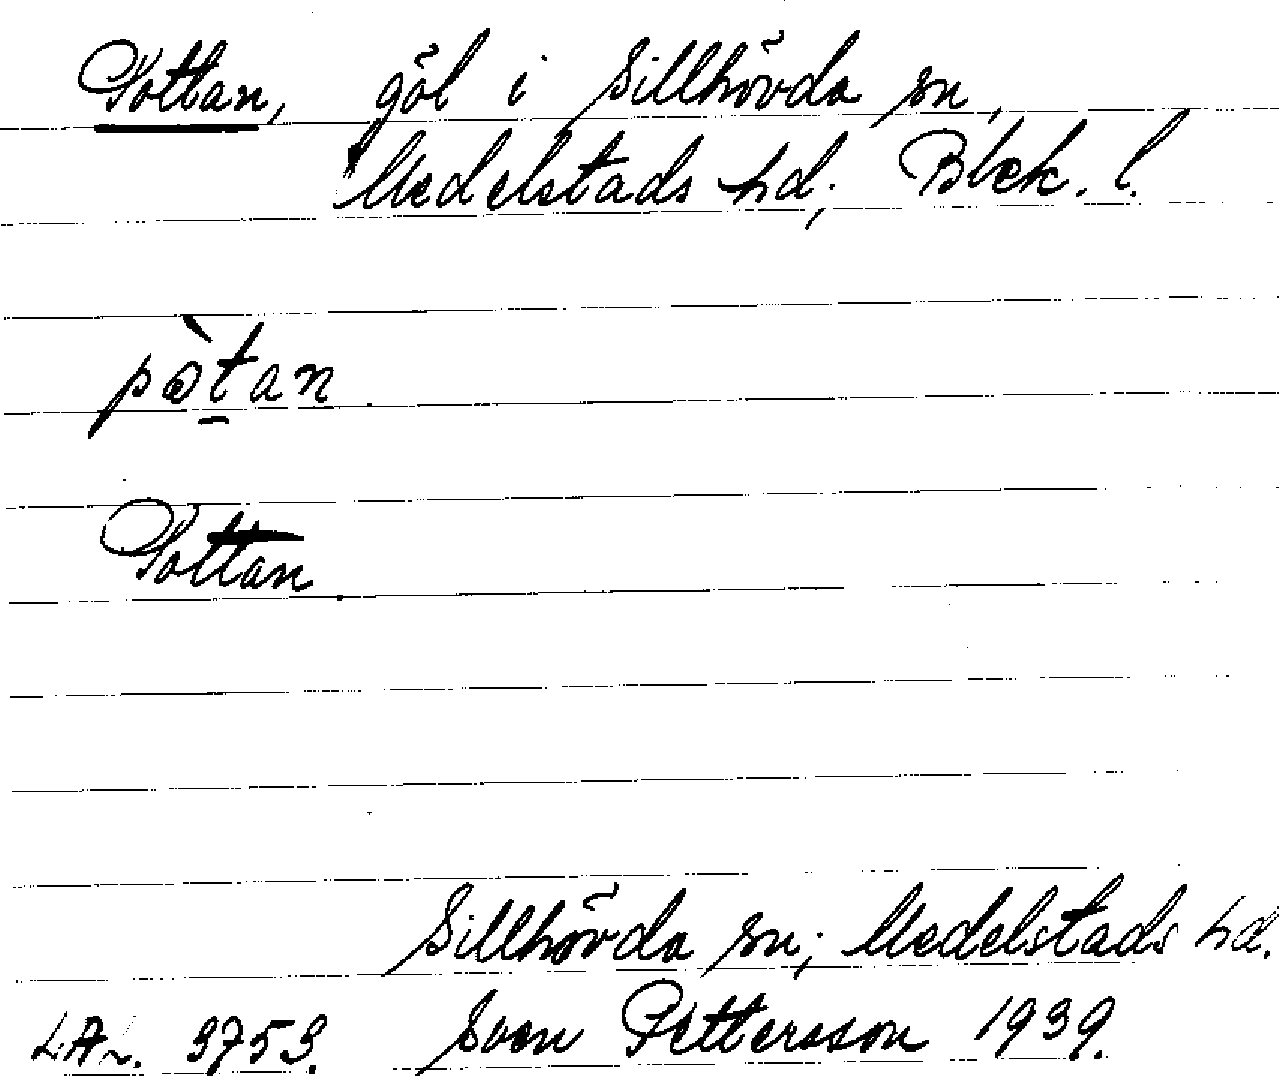 Pottan, göl i Sillhövda sn,
Medelstads hd, Blek. l.
pòt̲an
Pottan
Sillhövda sn; Medelstads hd.
LAL. 3753. Sven Pettersson 1939.